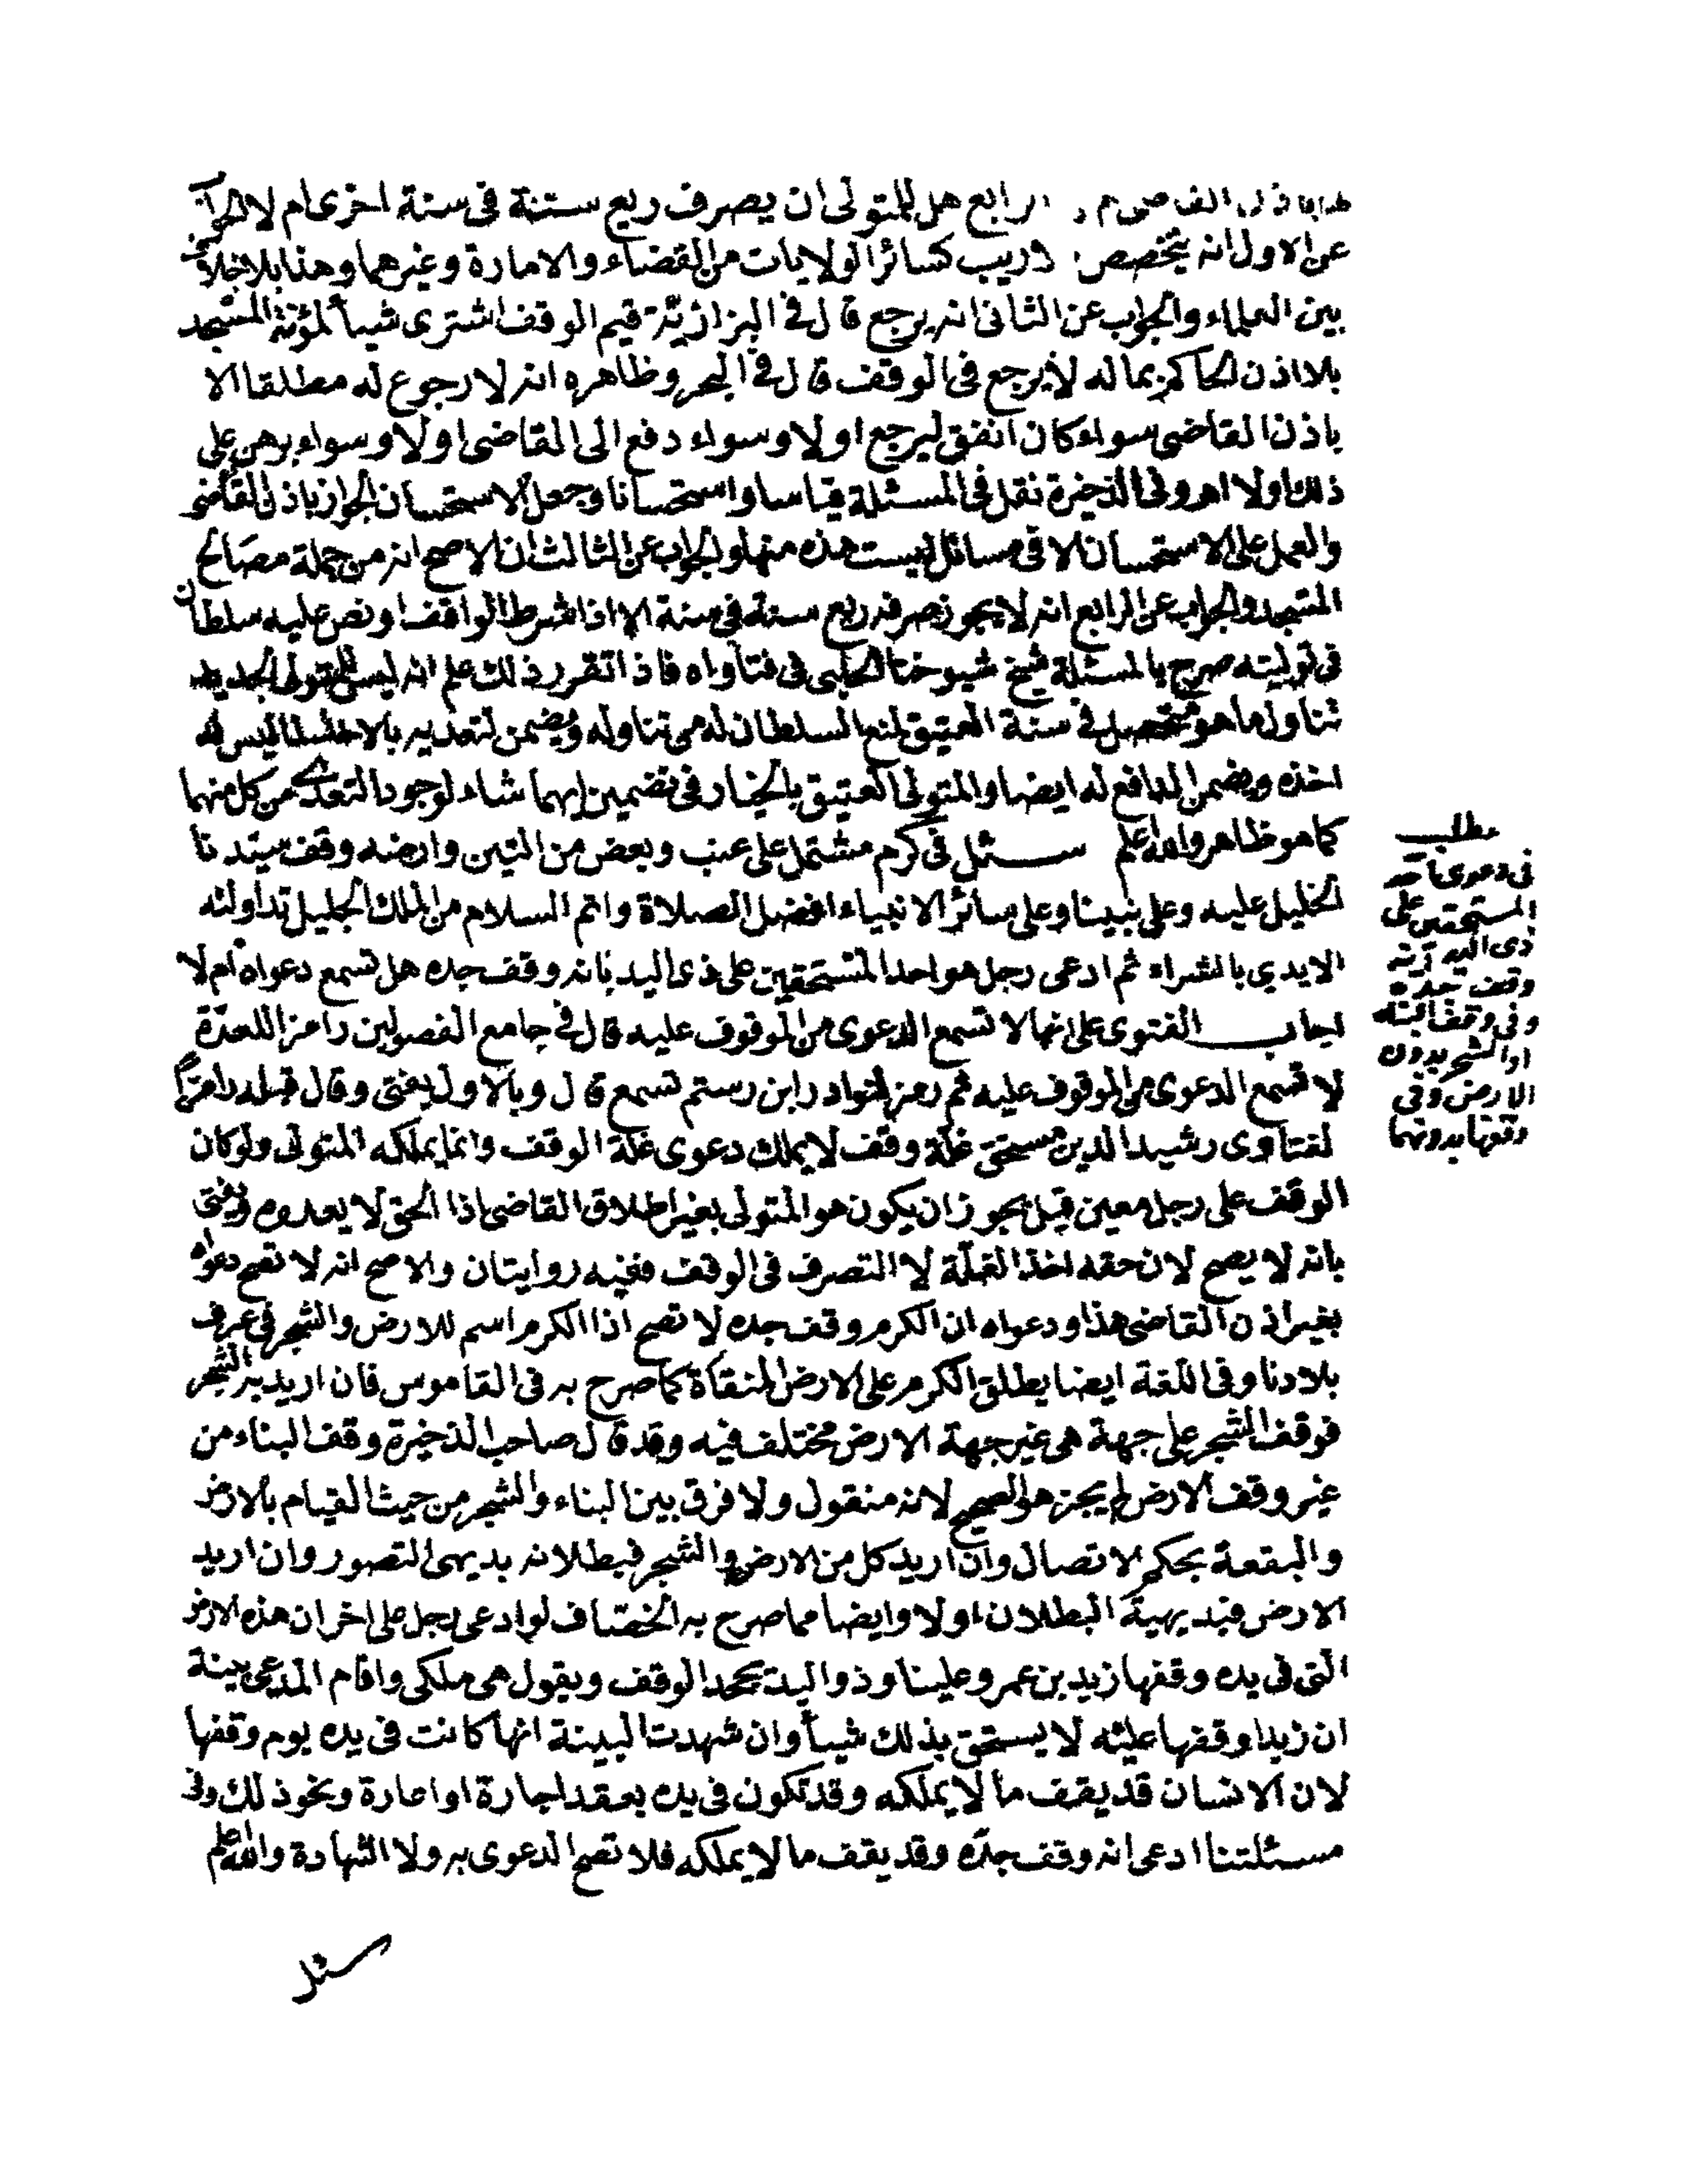 الرابع هل للمتولى ان يصرف ريع ستنة فى سنة اخرى ام لا الجواب
عن الاول انه يتخصص كسائر الولايات من القضاء والامارة وغيرهما وهذا بلا خلاف
بين العلماء والجواب عن الثانى انه يرجع قال فى البزازيّة قيم الوقف اشترى شيأ لمؤنة المسجد
بلا اذن الحاكم بماله لا يرجع فى الوقف قال فى البحر وظاهره انه لا رجوع له مطلقا الا
باذن القاضى سواء كان انفق ليرجع او لا وسواء دفع الى القاضى او لا وسواء برهن على
ذلك او لا اهر وفى الذخيرة نقل فى المسئلة قياسا واستحسانا وجعل الاستحسان الجواز باذن القاضى
والعمل على الاستحسان الا فى مسائل ليست هذه منها والجواب عن الثالث ان الاصح انه من جملة مصالح
المسجد والجواب عن الرابع انه لا يجوز صرف ريع سنة فى سنة الا اذا شرط الواقف او نص عليه سلطان
فى توليته صرح بالمسئلة شيخ شيوخنا الحلبى فى فتاواه فاذا تقرر ذلك علم انه ليس للمتولى الجديد
تناول ما هو متحصل فى سنة العتيق لمنع السلطان له من تناوله ويضمن لتعديه بالاخذ لما ليس له
اخذه ويضمن الدافع له ايضا والمتولى العتيق بالخيار فى تضمين ايهما شاء لوجود التعدى من كل منهما
كما هو ظاهر والله اعلم سئل فى كرم مشتمل على عنب وبعض من التين وارضه وقف سيّدنا
الخليل عليه وعلى نبينا وعلى سائر الانبياء افضل الصلاة واتم السلام من الملك الجليل تداولته
الايدي بالشراء ثم ادعى رجل هو احد المستحقين على ذى اليد بانه وقف جده هل تسمع دعواه ام لا
اجاب الفتوى على انها لا تسمع الدعوى من الموقوف عليه قال فى جامع الفصولين رامزا للعدّة
لا تسمع الدعوى من الموقوف عليه ثم رمز لنوادر ابن رستم تسمع قال وبالاول يفتى وقال قبله رامزاً
لفتاوى رشيد الدين مستحق غلّة وقف لا يملك دعوى غلة الوقف وانما يملكه المتولى ولو كان
الوقف على رجل معين قيل يجوز ان يكون هو المتولى بغير اطلاق القاضى اذا الحق لا يعدوه ويفتى
بانه لا يصح لان حقه اخذ الغلّة لا التصرف فى الوقف ففيه روايتان والاصح انه لا تصح دعواه
بغير اذن القاضى هذا ودعواه ان الكرم وقف جده لا تصح اذا الكرم اسم للارض والشجر فى عرف
بلادنا وفى اللّغة ايضا يطلق الكرم على الارض المنقاة كما صرح به فى القاموس فان اريد به الشجر
فوقف الشجر على جهة هى غير جهة الارض مختلف فيه وقد قال صاحب الذخيرة وقف البناء من
غير وقف الارض لم يجز هو الصحيح لانه منقول ولا فرق بين البناء والشجر من حيث القيام بالارض
والبقعة بحكم الاتصال وان اريد كل من الارض والشجر فبطلانه بديهى التصور وان اريد
الارض فبديهية البطلان اولا وايضا مما صرح به الخصّاف لو ادعى رجل على اخر ان هذه الارض
التى فى يده وقفها زيد بن عمر وعلينا وذو اليد يجحد الوقف ويقول هى ملكى واقام المدعى بينة
ان زيدا وقفها عليه لا يستحق بذلك شيأ وان شهدت البينة انها كانت فى يده يوم وقفها
لان الانسان قد يقف ما لا يملكه وقد تكون فى يده بعقد اجارة او اعارة ونحو ذلك وفى
مسئلتنا ادعى انه وقف جدّه وقد يقف ما لا يملكه فلا تصح الدعوى به ولا الشهادة والله اعلم
سئل
مطلب
فى دعوى احد
المستحقين على
ذى اليد انه
وقف جده
وفى وقف البناء
او الشجر بدون
الارض وفى
وقفها بدونهما